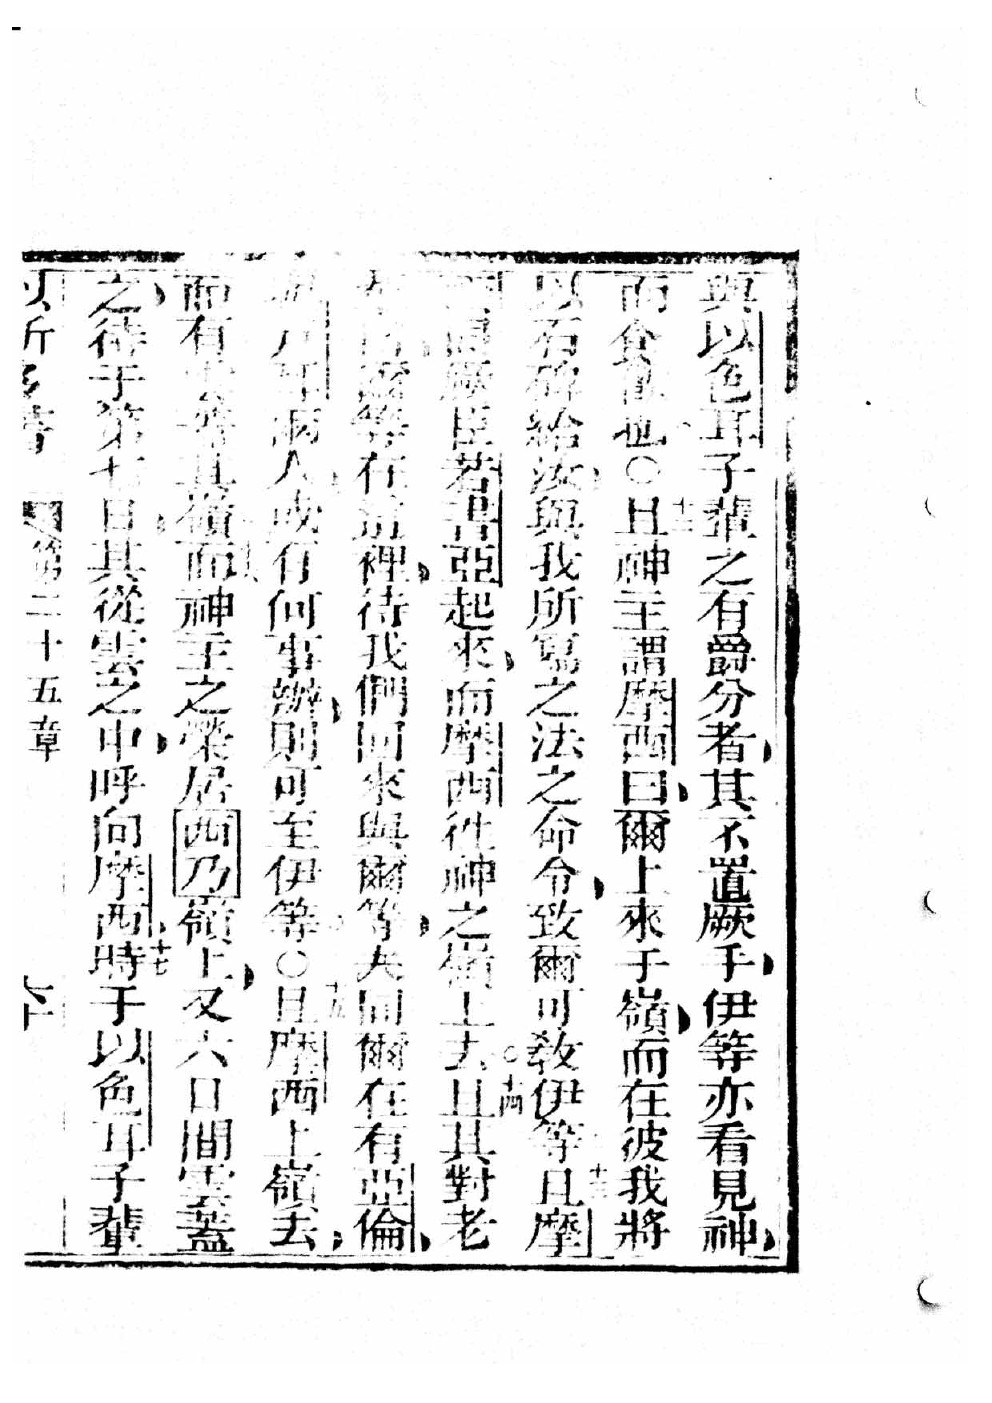 與以色耳子輩之有爵分者其不置厥手伊等亦看見神
而食飲也○十二且神主謂摩西曰爾上來于嶺而在彼我將
以石碑給汝與我所寫之法之命令致爾可教伊等十三且摩
西同厥臣若書亞起來而摩西徃神之嶺上去○十四且其對老
輩曰爾等在這裡待我們回來與爾等夫同爾在有亞倫
戶耳兩人或有何事辦則可至伊等○十五且摩西上嶺去
而有雲蓋其嶺而神主之榮居西乃嶺上又六日間雲蓋
之待于第七日其從雲之中呼向摩西十七時于以色耳子輩
以所多書 第二十五章 六